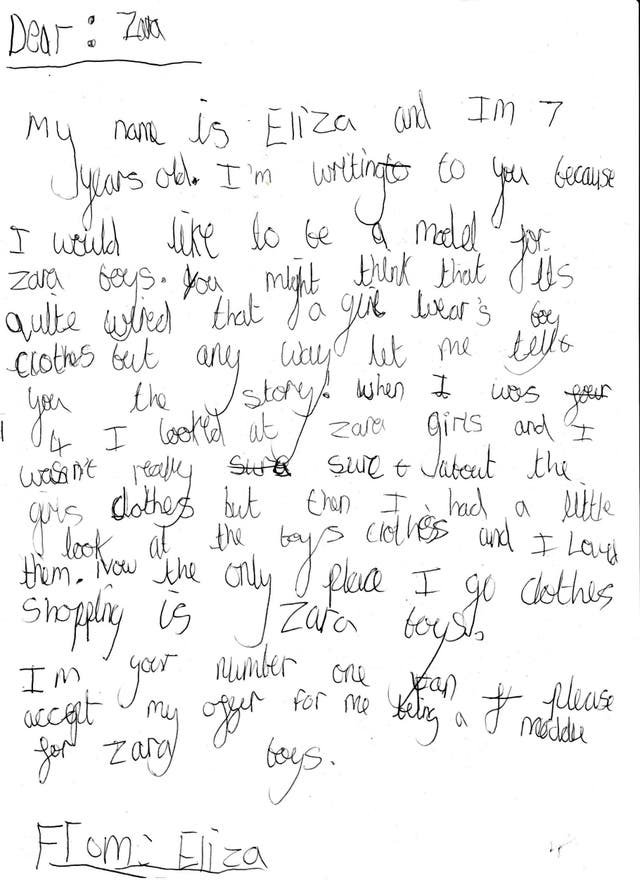 Dear: Zara
My name is Eliza and Im 7
years old. I'm writing to you because
I would like to be a model for
Zara boys. You might think that its
quite wired that a girl wear's boy
clothes but any way let me tell
you the story. when I was four
4 I looked at Zara girls and I
wasn't really sure sure about the
girls clothes but then I had a little
look at the boys clothes and I Loved
them. Now the only place I go clothes
shopping is Zara boys.
I'm your number one fan please
accept my offer for me being a moddle
for Zara boys.
From: Eliza